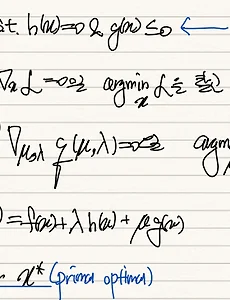 s.t. h(x)=0 & g(x)≤0 ←
∇x ℒ=0으로 argmin x ℒ를
∇μ,λ q(μ,λ)=0으로
)=f(x)+λh(x)+μg(x)
x* (primal optimal)